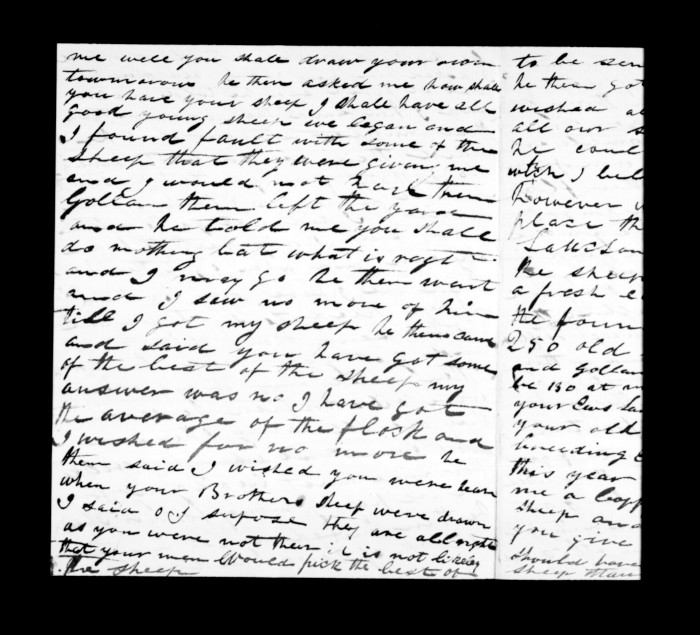 me well you shall draw your own
townmorow he then asked me how shall
you have your sheep I shall have all
good young sheep we began and
I found fault with some of the
sheep that they were given me
and I would not have them
Gollan then left the yard
and he told me you shall
do nothing but what is rogt
and I may go he then want
and I saw no more of him
till I got my sheep he then came
and said you have got some
of the best of the sheep my
answer was no I have got
the average of the flock and
I wished for no more he
then said I wished you were hear
when your Brothers sheep were drawn
I said o I supose they are all right
as you were not then it is not likely
that your men Would pick the best of
the sheep
to be sen
he then got
wished a
all our s
he coul
wich I bel
however
place th
the sheep
a fresh
the foun
250 old
and Gollan
be 150 at
your Ews
your old
breeding
this year
me a
sheep and
you give
should have
sheep than